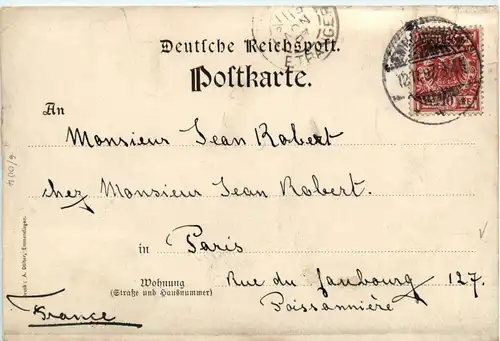 Deutsche Reichspost.
Postkarte.
An
Monsieur Jean Robert
chez Monsieur Jean Robert.
in Paris
Wohnung
(Straße und Hausnummer)
Rue du faubourg 127.
Poissonnière
France
ETRANGER
A. Dölter, Emmendingen.